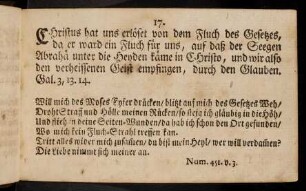 17.
CHristus hat uns erlöset von dem Fluch des Gesetzes,
da er ward ein Fluch für uns, auf daß der Seegen
Abrahā unter die Heyden käme in CHristo, und wir also
den verheissenen Geist empfingen, durch den Glauben.
Gal. 3, 13. 14.
Will mich des Moses Eyfer drücken/ blitzt auf mich des Gesetzes Weh/
Droht Straff und Hölle meinen Rücken/ so steig ich gläubig in die Höh/
Und flieh in deine Seiten-Wunden/ da hab ich schon den Ort gefunden/
Wo mich kein Fluch-Strahl treffen kan.
Tritt alles wider mich zusam̄en/ du bist mein Heyl/ wer will verdam̄en?
Die Liebe nimmt sich meiner an.
Num. 451. v. 3.